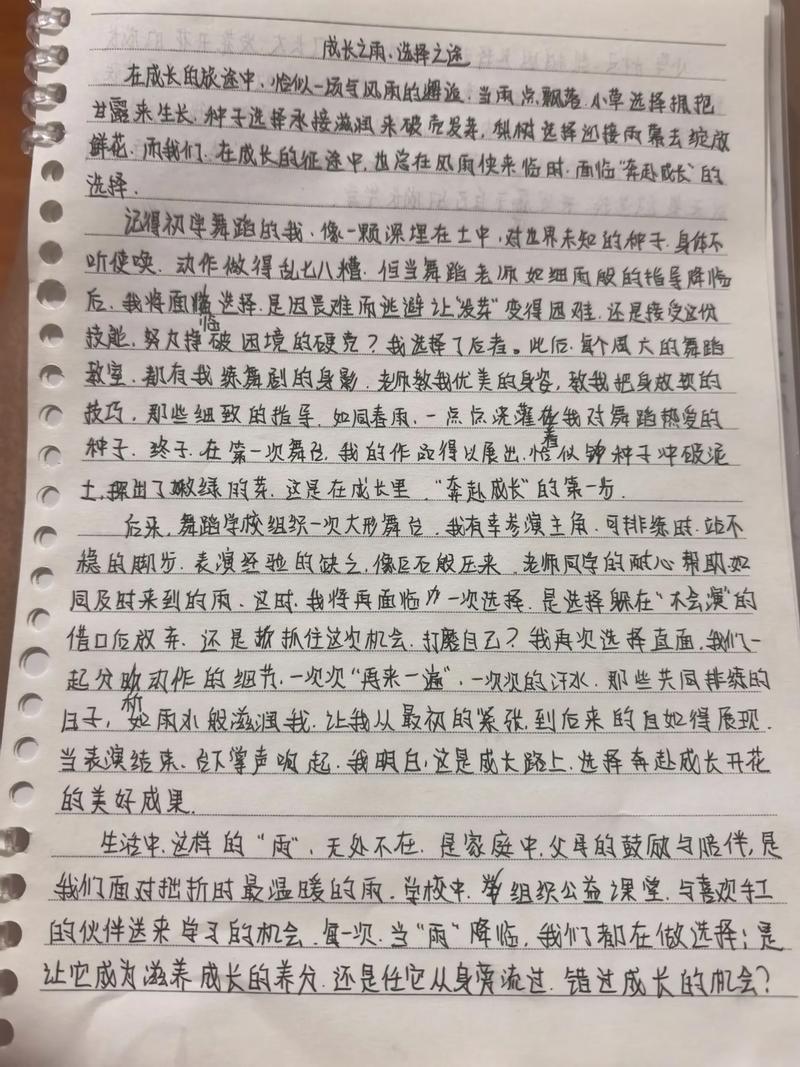 成长之雨，选择之途
在成长的旅途中，恰似一场与风雨的邂逅。当雨点飘落，小草选择拥抱
甘露来生长，种子选择承接滋润来破壳发芽，树选择迎接雨幕去绽放
鲜花。而我们，在成长的征途中，也总在风雨使来临时，面临“奔赴成长”的
选择。
记得初学舞蹈的我，像一颗深埋在土中，对世界未知的种子，身体不
听使唤，动作做得乱七八糟。但当舞蹈老师如细雨般的指导降临
后，我将面临选择，是因畏难而逃避让“发芽”变得困难，还是接受这份
技能，努力撑破困境的硬壳？我选择了后者。此后，每个周六的舞蹈
教室，都有我练舞剧的身影，老师教我优美的身姿，教我把身放软的
技巧，那些细致的指导，如同春雨，一点点浇灌着我对舞蹈热爱的
种子。终于，在第一次舞台，我的作品得以展出，恰似种子冲破泥
土，探出了嫩绿的芽。这是在成长里，“奔赴成长”的第一步。
后来，舞蹈学校组织一次大形舞台，我有幸参演主角，可排练时，站不
稳的脚步，表演经验的缺乏，像巨石般压来，老师同学的耐心帮助如
同及时来到的雨，这时，我将再面临一次选择，是选择躲在“不会演”的
借口后放弃，还是抓住这次机会，打磨自己？我再次选择直面，我们一
起分析动作的细节，一次次“再来一遍”，一次次的汗水，那些共同排练的
日子，如雨水般滋润我，让我从最初的紧张，到后来的自如得展现。
当表演结束，台下掌声响起，我明白，这是成长路上，选择奔赴成长开花
的美好成果。
生活中，这样的“雨”，无处不在，是家庭中，父母的鼓励与陪伴，是
我们面对挫折时最温暖的雨，学校中，组织公益课堂，与喜欢手工
的伙伴送来学习的机会。每一次，当“雨”降临，我们都在做选择；是
让它成为滋养成长的养分，还是任它从身旁流过，错过成长的机会？